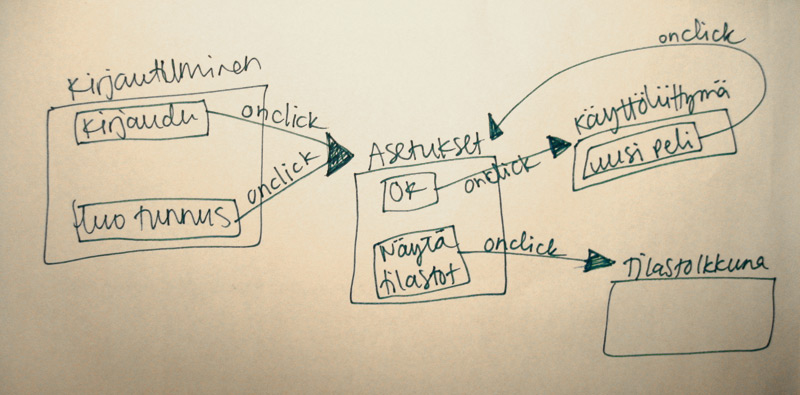 Kirjautuminen
Kirjaudu
onclick
luo tunnus
onclick
Asetukset
OK
onclick
Näytä
tilastot
onclick
Käyttöliittymä
uusi peli
onclick
Tilastoikkuna